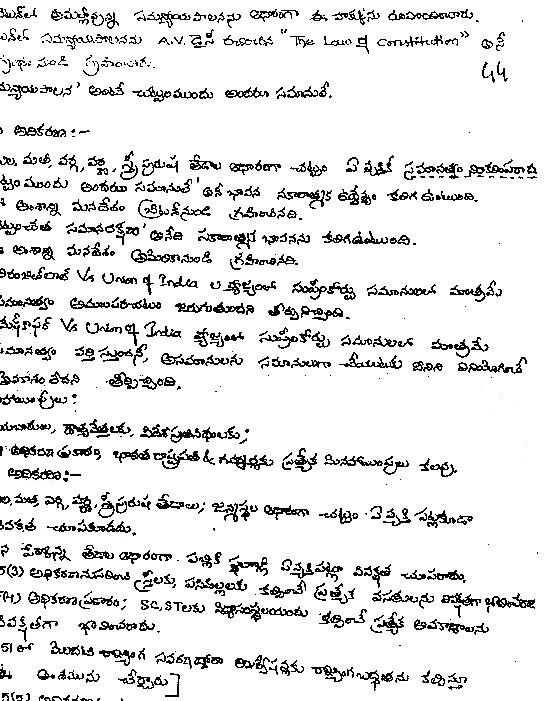 అమల్లోవున్న సమన్యాయపాలనను ఆధారంగా ఈ హక్కును రూపొందించారు.
సమన్యాయపాలనను A.V. డైసీ రచించిన "The Law of Constitution" అనే
గ్రంథం నుండి గ్రహించారు.
44
అంటే చట్టంముందు అందరూ సమానులే.
అధికరణ :-
మత, వర్గ, వర్ణ, స్త్రీ పురుష తేదాల ఆధారంగా చట్టం ఏ వ్యక్తికీ సమానత్వం నిరాకరించరాదు
ముందు అందరూ సమానులే' అనే భావన నకారాత్మక ఉద్దేశ్యం కలిగి ఉంటుంది.
అంశాన్ని మనదేశం బ్రిటన్ నుండి గ్రహించినది.
సమానరక్షణ' అనేది సకారాత్మక భావనను కలిగిఉంటుంది.
అంశాన్ని మనదేశం అమెరికానుండి గ్రహించినది.
Vs Union of India ల వ్యాజ్యంలో సుప్రీంకోర్టు సమానులలో మాత్రమే
సమానత్వం అమలుపరచటం జరుగుతుందని తీర్పునిచ్చింది.
Vs Union of India వ్యాజ్యంలో సుప్రీంకోర్టు సమానులలో మాత్రమే
సమానత్వం వర్తిస్తుందని, అసమానులను సమానులుగా చేయుటకు దీనిని వినియోగించే
అవకాశం లేదని తీర్పిచ్చింది.
మినహాయింపులు :
రాయబారులు, దౌత్యవేత్తలకు, విదేశీప్రతినిధులకు;
అధికరణ ప్రకారం, భారత రాష్ట్రపతి & గవర్నర్లకు ప్రత్యేక మినహాయింపులు కలవు.
అధికరణ:-
మత, వర్గ, వర్ణ, స్త్రీపురుష తేదాలు, జన్మస్థల ఆధారంగా చట్టం ఏ వ్యక్తి పట్లకూడా
వివక్షత చూపకూడదు.
పేర్కొన్న తేదాల ఆధారంగా పబ్లిక్ స్థలాల్లో ఏవ్యక్తిపట్లా వివక్షత చూపరాదు.
5(3) అధికరణాననుసరించి స్త్రీలకు, పసిపిల్లలకు కల్పించే ప్రత్యేక వసతులను వివక్షతగా భావించరాదు
(4) అధికరణప్రకారం; SC, STలకు విద్యాసంస్థలయందు కల్పించే ప్రత్యేక అవకాశాలను
వివక్షతగా భావించరాదు.
51లో మొదటి రాజ్యాంగ సవరణద్వారా రిజర్వేషన్లకు రాజ్యాంగబద్ధతను కల్పిస్తూ
అంశమును చేర్చారు]
5(5) అధికరణ